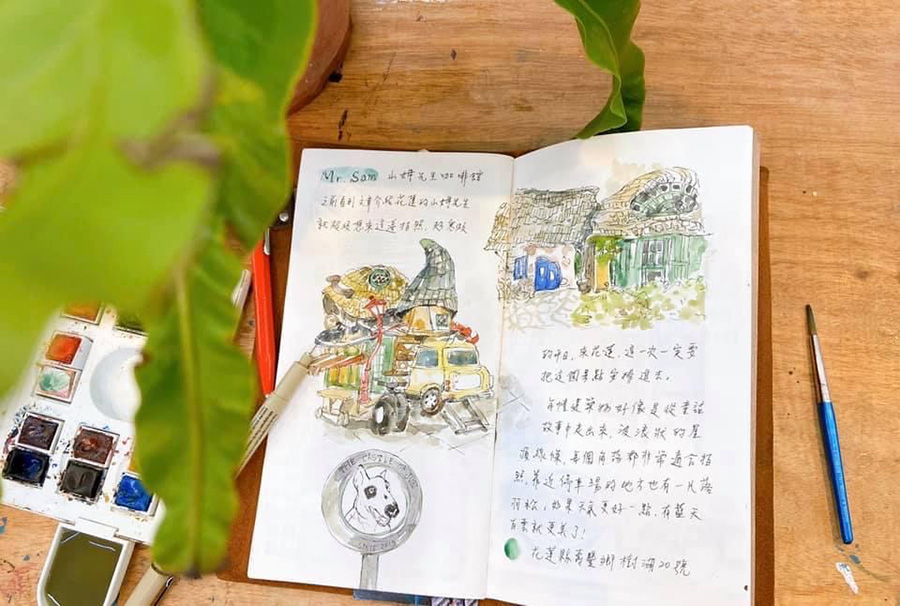 Mr. Sam 山姆先生咖啡館
之前看到文章介紹花蓮的山姆先生
就超級想來這邊拍照,
THE CASTLE
SINCE
來花蓮,這一次一定要
把這個景點安排進去。
每幢建築物好像是從童話
故事中走出來,波浪狀的屋
頂線條,每個角落都非常適合拍
照,靠近停車場的地方也有一片落
羽松,如果天氣更好一點,有藍天
白雲就更美了!
花蓮縣壽豐鄉樹湖20號